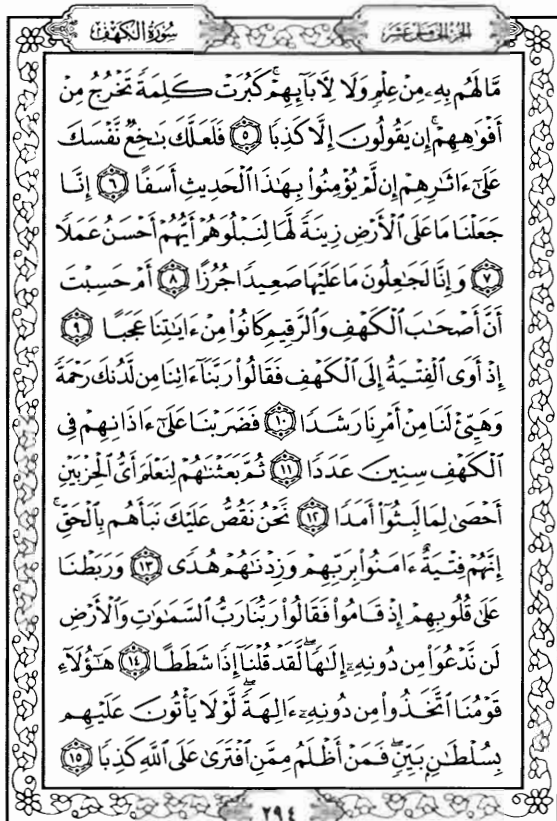 سُورَةُ الكَهْفِ
الجُزءُ الخَامِسَ عَشَرَ
مَّا لَهُم بِهِۦ مِنْ عِلْمٍ وَلَا لِأٓبَآئِهِمْۚ كَبُرَتْ كَلِمَةً تَخْرُجُ مِنْ
أَفْوَٰهِهِمْۚ إِن يَقُولُونَ إِلَّا كَذِبًا ٥ فَلَعَلَّكَ بَٰخِعٌ نَّفْسَكَ
عَلَىٰٓ ءَاثَٰرِهِمْ إِن لَّمْ يُؤْمِنُوا۟ بِهَٰذَا ٱلْحَدِيثِ أَسَفًا ٦ إِنَّا
جَعَلْنَا مَا عَلَى ٱلْأَرْضِ زِينَةً لَّهَا لِنَبْلُوَهُمْ أَيُّهُمْ أَحْسَنُ عَمَلًا
٧ وَإِنَّا لَجَٰعِلُونَ مَا عَلَيْهَا صَعِيدًا جُرُزًا ٨ أَمْ حَسِبْتَ
أَنَّ أَصْحَٰبَ ٱلْكَهْفِ وَٱلرَّقِيمِ كَانُوا۟ مِنْ ءَايَٰتِنَا عَجَبًا ٩
إِذْ أَوَى ٱلْفِتْيَةُ إِلَى ٱلْكَهْفِ فَقَالُوا۟ رَبَّنَآ ءَاتِنَا مِن لَّدُنكَ رَحْمَةً
وَهَيِّئْ لَنَا مِنْ أَمْرِنَا رَشَدًا ١٠ فَضَرَبْنَا عَلَىٰٓ ءَاذَانِهِمْ فِى
ٱلْكَهْفِ سِنِينَ عَدَدًا ١١ ثُمَّ بَعَثْنَٰهُمْ لِنَعْلَمَ أَىُّ ٱلْحِزْبَيْنِ
أَحْصَىٰ لِمَا لَبِثُوٓا۟ أَمَدًا ١٢ نَّحْنُ نَقُصُّ عَلَيْكَ نَبَأَهُم بِٱلْحَقِّۚ
إِنَّهُمْ فِتْيَةٌ ءَامَنُوا۟ بِرَبِّهِمْ وَزِدْنَٰهُمْ هُدًى ١٣ وَرَبَطْنَا
عَلَىٰ قُلُوبِهِمْ إِذْ قَامُوا۟ فَقَالُوا۟ رَبُّنَا رَبُّ ٱلسَّمَٰوَٰتِ وَٱلْأَرْضِ
لَن نَّدْعُوَا۟ مِن دُونِهِۦٓ إِلَٰهًاۖ لَّقَدْ قُلْنَآ إِذًا شَطَطًا ١٤ هَٰٓؤُلَآءِ
قَوْمُنَا ٱتَّخَذُوا۟ مِن دُونِهِۦٓ ءَالِهَةًۖ لَّوْلَا يَأْتُونَ عَلَيْهِم
بِسُلْطَٰنٍۭ بَيِّنٍۖ فَمَنْ أَظْلَمُ مِمَّنِ ٱفْتَرَىٰ عَلَى ٱللَّهِ كَذِبًا ١٥
٢٩٤